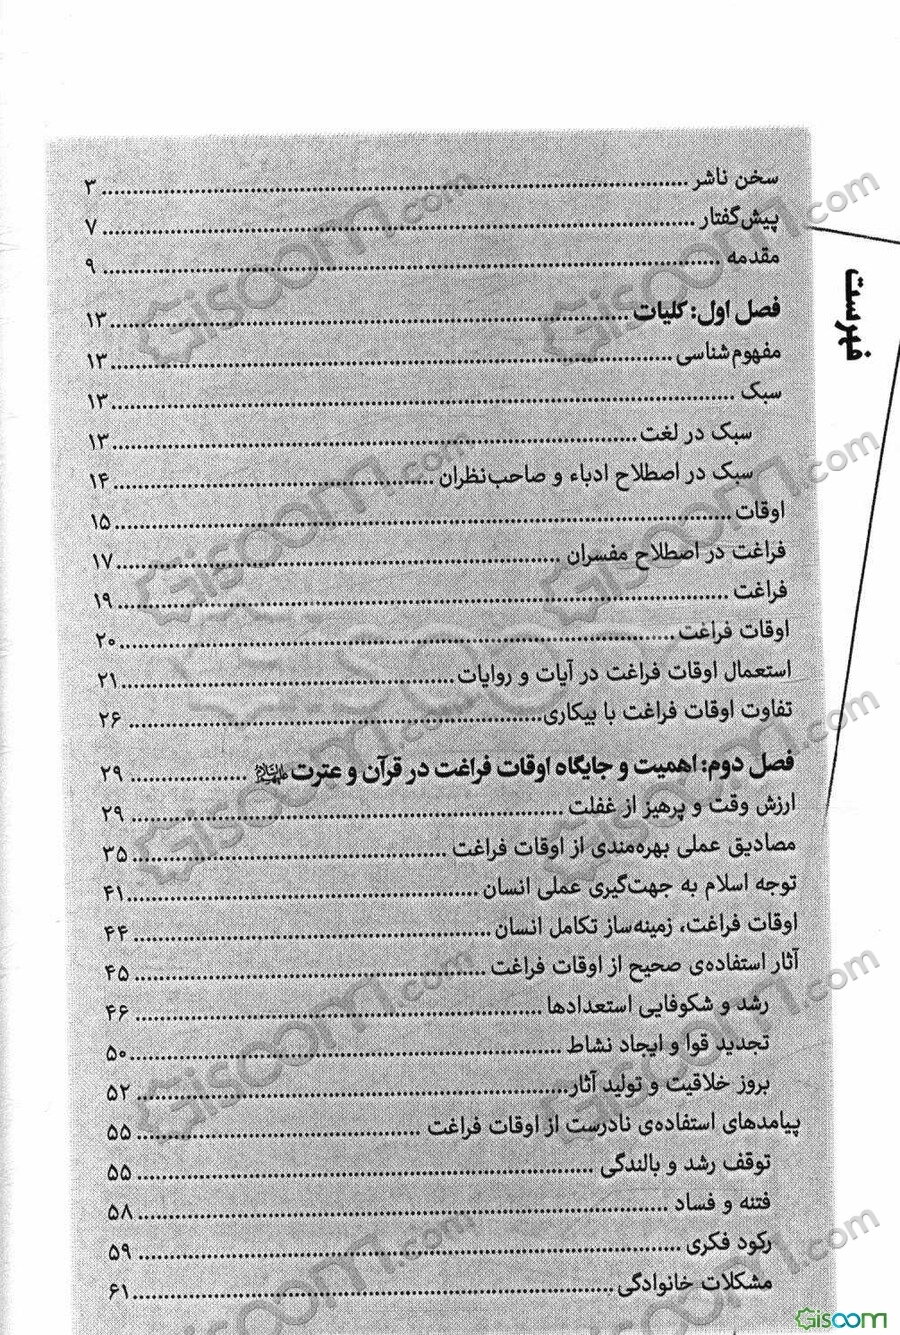 فهرست
سخن ناشر ........ ۳
پیش‌گفتار ........ ۷
مقدمه ........ ۹
فصل اول: کلیات ........ ۱۳
مفهوم‌شناسی ........ ۱۳
سبک ........ ۱۳
سبک در لغت ........ ۱۳
سبک در اصطلاح ادباء و صاحب‌نظران ........ ۱۴
اوقات ........ ۱۵
فراغت در اصطلاح مفسران ........ ۱۷
فراغت ........ ۱۹
اوقات فراغت ........ ۲۰
استعمال اوقات فراغت در آیات و روایات ........ ۲۱
تفاوت اوقات فراغت با بیکاری ........ ۲۶
فصل دوم: اهمیت و جایگاه اوقات فراغت در قرآن و عترت ........ ۲۹
ارزش وقت و پرهیز از غفلت ........ ۲۹
مصادیق عملی بهره‌مندی از اوقات فراغت ........ ۳۵
توجه اسلام به جهت‌گیری عملی انسان ........ ۴۱
اوقات فراغت، زمینه‌ساز تکامل انسان ........ ۴۴
آثار استفاده‌ی صحیح از اوقات فراغت ........ ۴۵
رشد و شکوفایی استعدادها ........ ۴۶
تجدید قوا و ایجاد نشاط ........ ۵۰
بروز خلاقیت و تولید آثار ........ ۵۲
پیامدهای استفاده‌ی نادرست از اوقات فراغت ........ ۵۵
توقف رشد و بالندگی ........ ۵۵
فتنه و فساد ........ ۵۸
رکود فکری ........ ۵۹
مشکلات خانوادگی ........ ۶۱
Gisoom